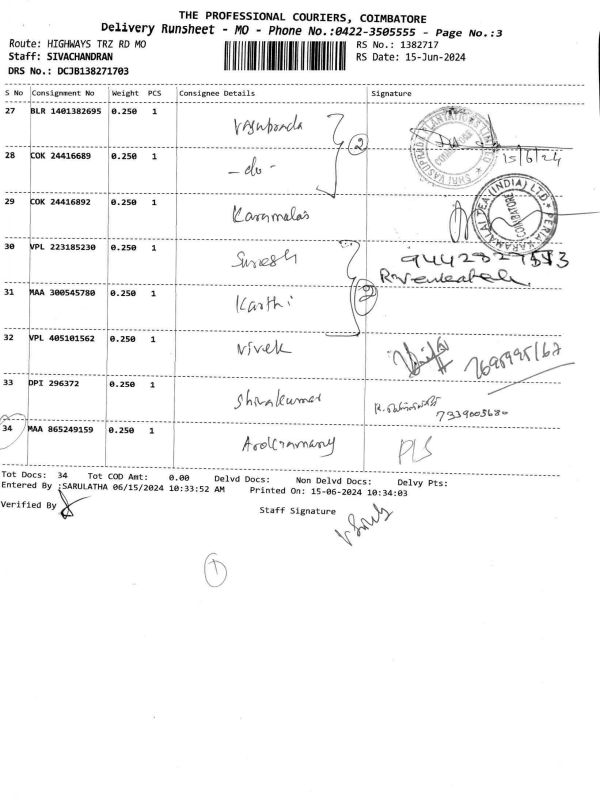 THE PROFESSIONAL COURIERS, COIMBATORE
Delivery Runsheet - MO - Phone No.:0422-3505555 - Page No.:3
Route: HIGHWAYS TRZ RD MO RS No.: 1382717
Staff: SIVACHANDRAN RS Date: 15-Jun-2024
DRS No.: DCJB138271703
S No Consignment No Weight PCS Consignee Details Signature
27 BLR 1401382695 0.250 1 Vasuprada
2
28 COK 24416689 0.250 1 -do- 15/6/24
29 COK 24416892 0.250 1 Karamalai
30 VPL 223185230 0.250 1 Suresh
31 MAA 300545780 0.250 1 Karthi 2
32 VPL 405101562 0.250 1 Vivek
33 DPI 296372 0.250 1 Shivakumar
7339005680
34 MAA 865249159 0.250 1 PLS
Tot Docs: 34 Tot COD Amt: 0.00 Delvd Docs: Non Delvd Docs: Delvy Pts:
Entered By :SARULATHA 06/15/2024 10:33:52 AM Printed On: 15-06-2024 10:34:03
Verified By
Staff Signature
1